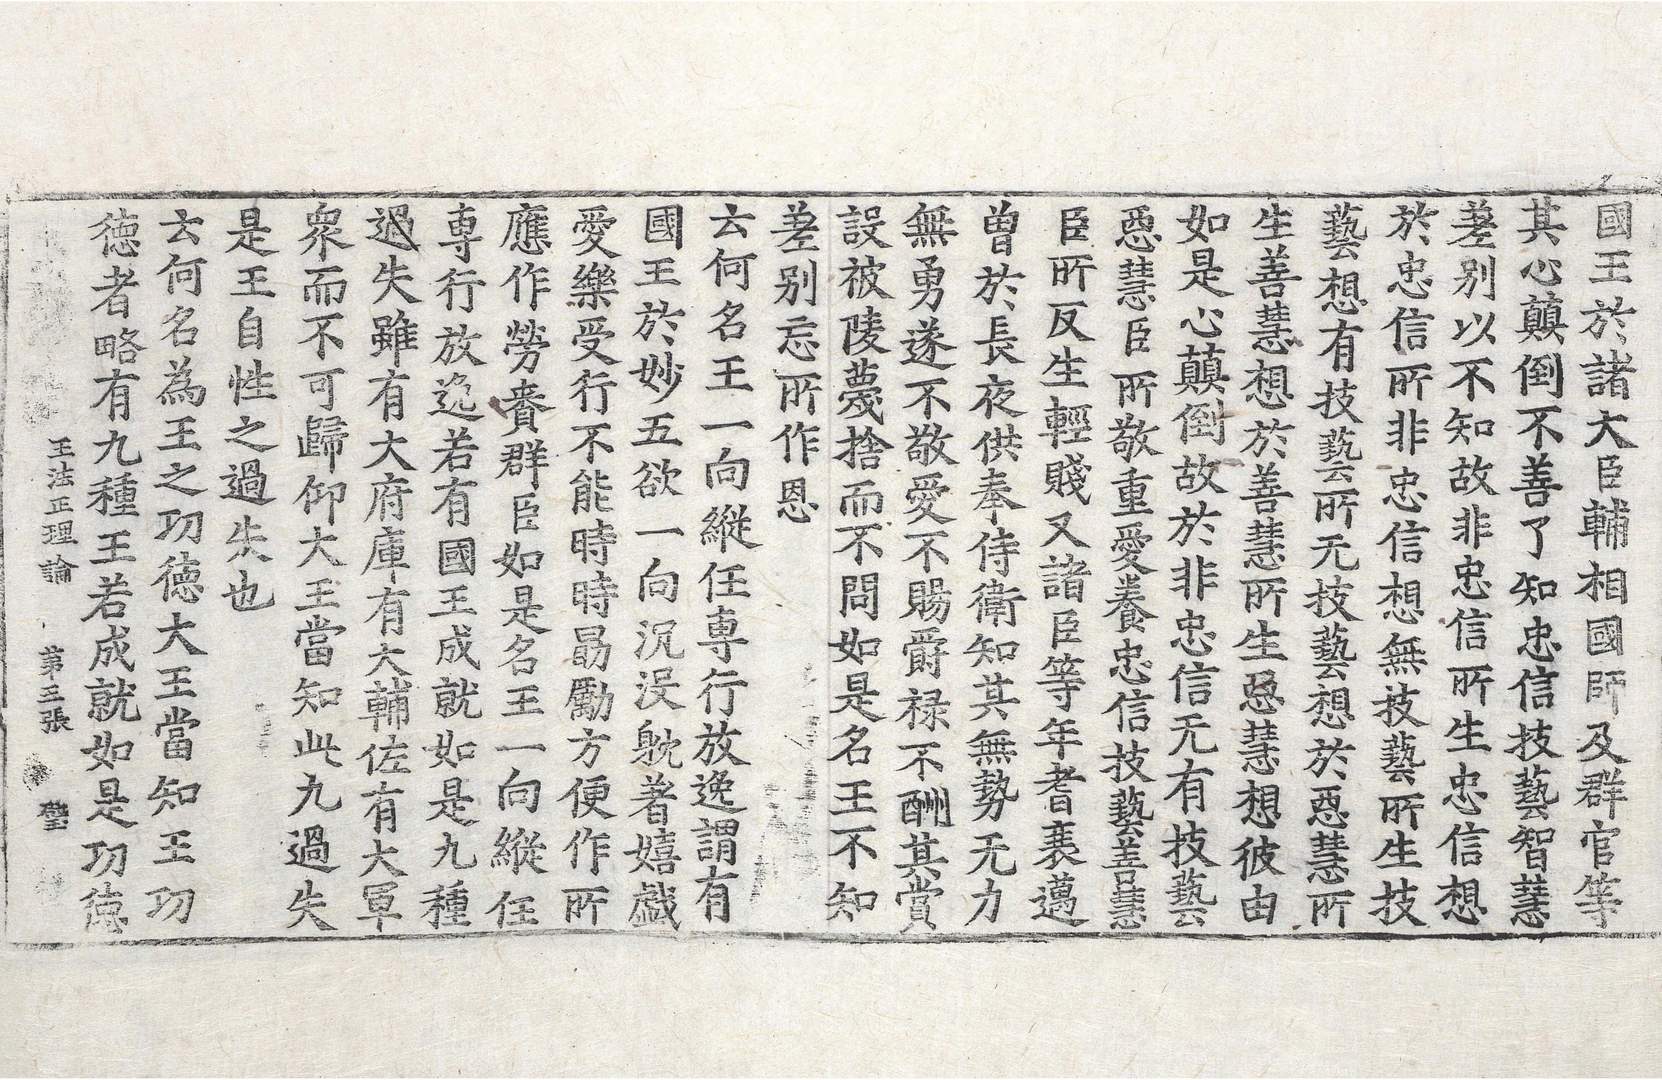 國王於諸大臣輔相國師及群官等
其心顛倒不善了知忠信技藝智慧
差別以不知故非忠信所生忠信想
於忠信所非忠信想無技藝所生技
藝想有技藝所无技藝想於惡慧所
生善慧想於善慧所生惡慧想彼由
如是心顛倒故於非忠信无有技藝
惡慧臣所敬重愛養忠信技藝善慧
臣所反生輕賤又諸臣等年耆衰邁
曾於長夜供奉侍衛知其無勢无力
無勇遂不敬愛不賜爵祿不酬其賞
設被陵蔑捨而不問如是名王不知
差別忘所作恩
云何名王一向縱任專行放逸謂有
國王於妙五欲一向沉没躭著嬉戲
愛樂受行不能時時勗勵方便作所
應作勞賚群臣如是名王一向縱任
專行放逸若有國王成就如是九種
過失雖有大府庫有大輔佐有大軍
衆而不可歸仰大王當知此九過失
是王自性之過失也
云何名為王之功德大王當知王功
德者略有九種王若成就如是功德
王法正理論 第三張 璧